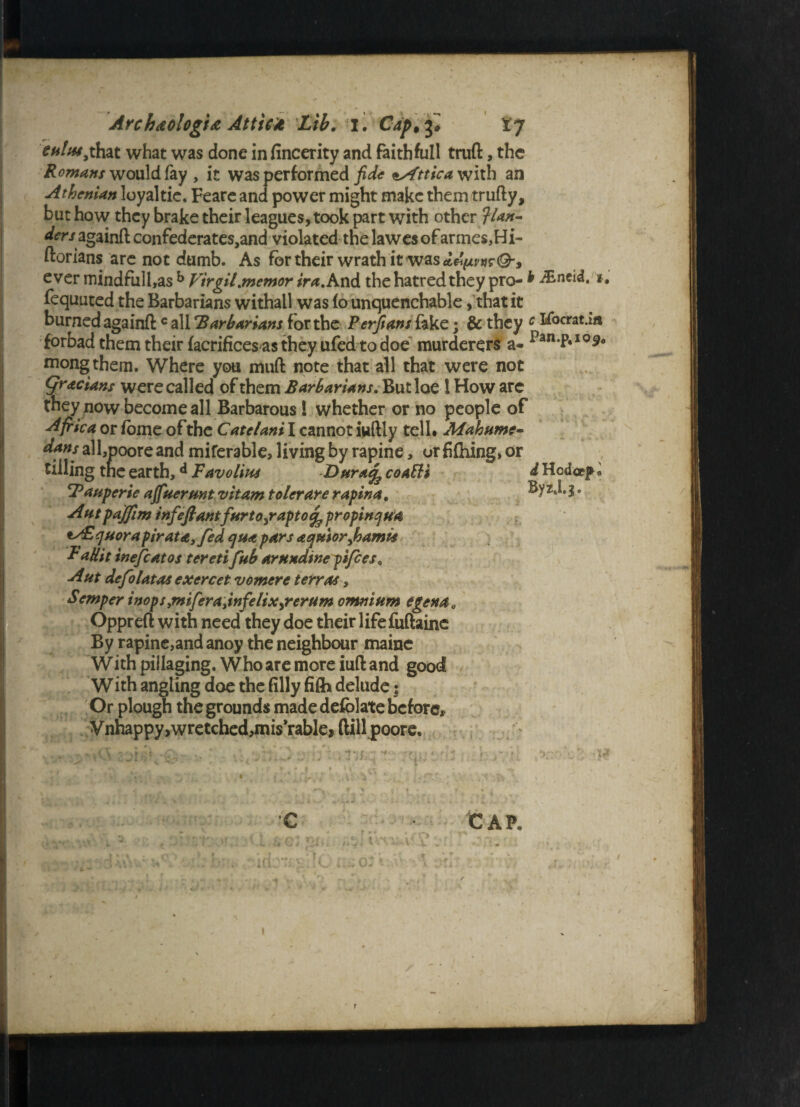 Archæologiæ Atticæ Lib. 1. Cap. 3. 17
culus, that what was done in ſincerity and faithfull truſt, the
Romans would ſay, it was performed fide Attica with an
Athenian loyaltie. Feare and power might make them truſty,
but how they brake their leagues, took part with other Ilan-
ders againſt confederates, and violated the lawes of armes, Hi-
ſtorians are not dumb. As for their wrath it was
ever mindfull, as b Virgil, memor ira. And the hatred they pro- b Æneid. 1.
ſequuted the Barbarians withall was ſo unquenchable, that it
burned againſt c all Barbarians for the Perſians ſake; & they c Iſocrat. in
forbad them their ſacrifices as they uſed to doe murderers a- Pan. p. 109.
mong them. Where you muſt note that all that were not
Græcians were called of them Barbarians. But loe! How are
they now become all Barbarous! whether or no people of
Africa or ſome of the Catelani I cannot iuſtly tell. Mahume-
dans all, poore and miſerable, living by rapine, or fiſhing, or
tilling the earth, d Favolius Duraq; coacti d Hodœp.
Pauperie aſſuerunt vitam tolerare rapina. Byz. l. 3.
Aut paſſim infeſtant furto, raptoq; propinqua
Æquora piratæ, ſed quæ pars æquior, hamis
Fallit ineſcatos tereti ſub arundine piſces.
Aut deſolatas exercet vomere terras,
Semper inops, miſera, infelix, rerum omnium egena.
Oppreſt with need they doe their life ſuſtaine
By rapine, and anoy the neighbour maine
With pillaging. Who are more iuſt and good
With angling doe the ſilly fiſh delude;
Or plough the grounds made deſolate before,
Vnhappy, wretched, mis'rable, ſtill poore.
C CAP.